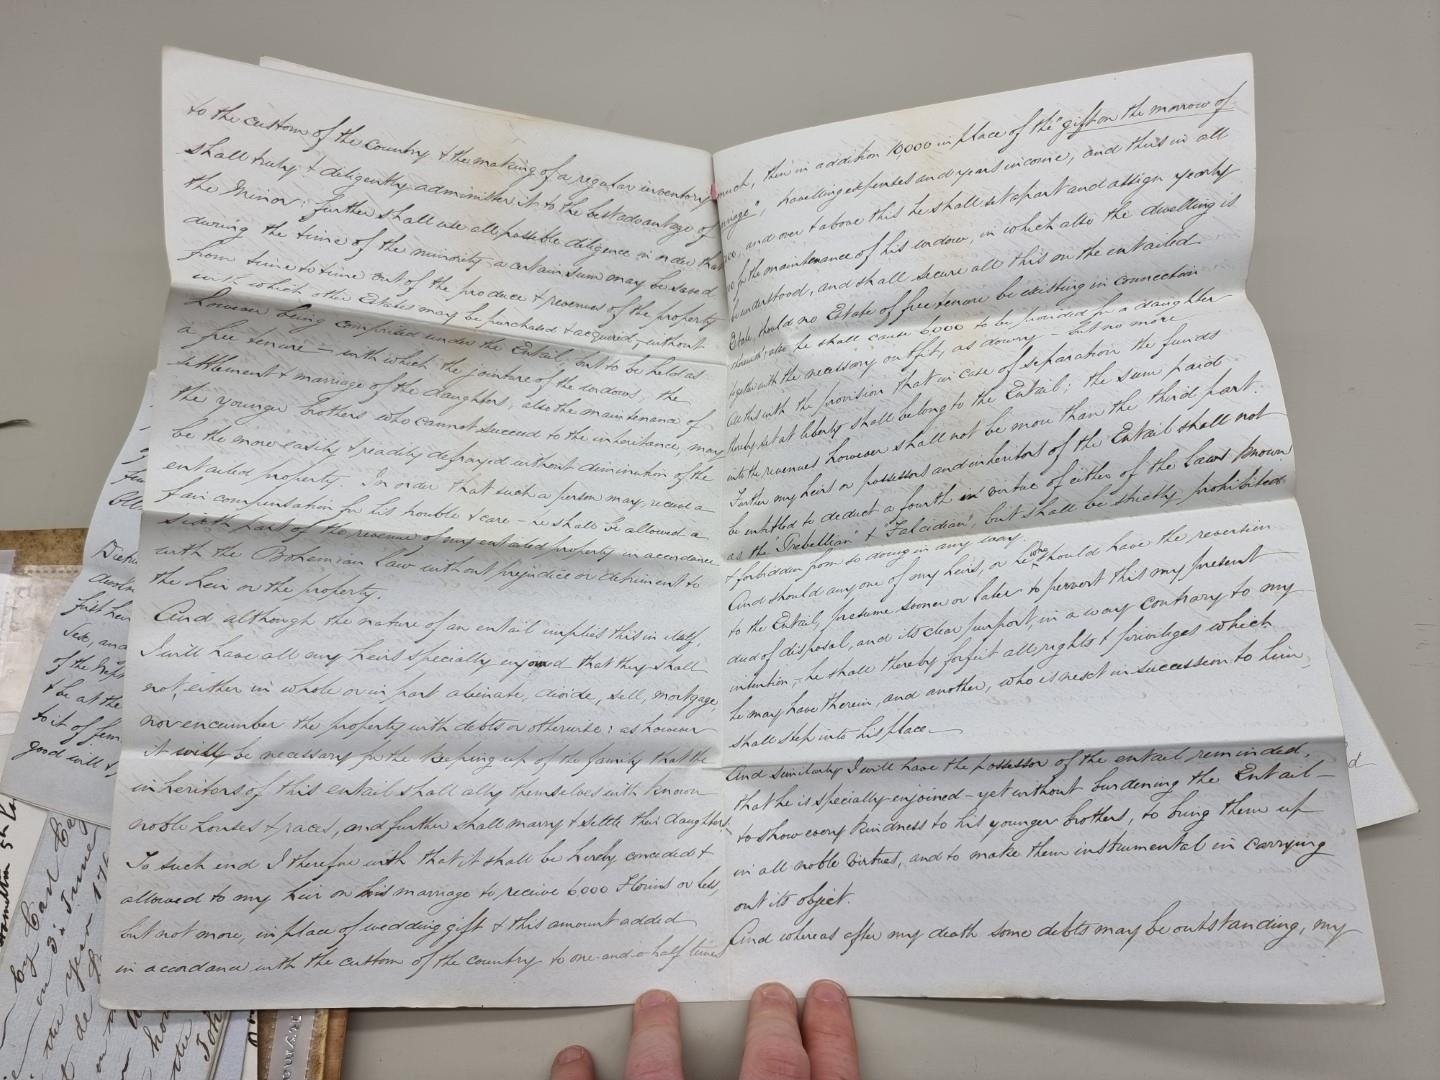 to the custom of the country & the making of a regular inventory
shall truly & diligently administer it to the best advantage of
the Minor: further shall use all possible diligence in order that
during the time of the minority a certain sum may be saved
from time to time out of the produce & revenues of the property
with which other Estates may be purchased & acquired, without
however being comprised under the Entail, but to be held as
a free tenure – with which the jointure of the widows, the
settlement & marriage of the daughters, also the maintenance of
the younger brothers who cannot succeed to the inheritance, may
be the more easily & readily defrayed without diminution of the
entailed property. In order that such a person may receive a
fair compensation for his trouble & care – he shall be allowed a
sixth part of the revenue of my entailed property in accordance
with the Bohemian law without prejudice or detriment to
the heir or the property.
And although the nature of an entail implies this in itself,
I will have all my heirs specially enjoined that they shall
not, either in whole or in part alienate, divide, sell, mortgage,
nor encumber the property with debts or otherwise: as however
it will be necessary for the keeping up of the family that the
inheritors of this entail shall ally themselves with known
noble houses & races, and further shall marry & settle their daughters.
To such end I therefore wish that it shall be hereby conceded &
allowed to my heir on his marriage to receive 6000 Florins or less,
but not more, in place of wedding gift & this amount added
in accordance with the custom of the country to one-and-a-half times
much, then in addition 10000 in place of the "gift on the morrow of
, travelling expenses and years income, and this in all
and over & above this he shall set apart and assign yearly
for the maintenance of his widow, in which also the dwelling is
understood, and shall secure all this on the entailed
Estate, should no Estate of free tenure be existing in connection
also he shall cause 6000 to be provided for a daughter
together with the necessary outfit, as dowry – but no more
All this with the provision that in case of separation the funds
thereby set at liberty shall belong to the Entail; the sum paid
into the revenues however shall not be more than the third part.
Further my heirs or possessors and inheritors of the Entail shall not
be entitled to deduct a fourth in virtue of either of the laws known
as the "Trebellian" & "Falcidian", but shall be strictly prohibited
& forbidden from so doing in any way.
And should any one of my heirs, or he who should have the reversion
to the Entail, presume sooner or later to pervert this my present
deed of disposal, and its clear purport, in a way contrary to my
intention, – he shall thereby forfeit all rights & privileges which
he may have therein, and another, who is next in succession to him,
shall step into his place –
And similarly I will have the possessor of the entail reminded,
that he is specially enjoined – yet without burdening the Entail –
to show every kindness to his younger brothers, to bring them up
in all noble virtues, and to make them instrumental in carrying
out its object.
And whereas after my death some debts may be outstanding, my
first heir
Sex, and
of the
& be at the
to it of
good will &
by Carl
on 3d June
the year
the